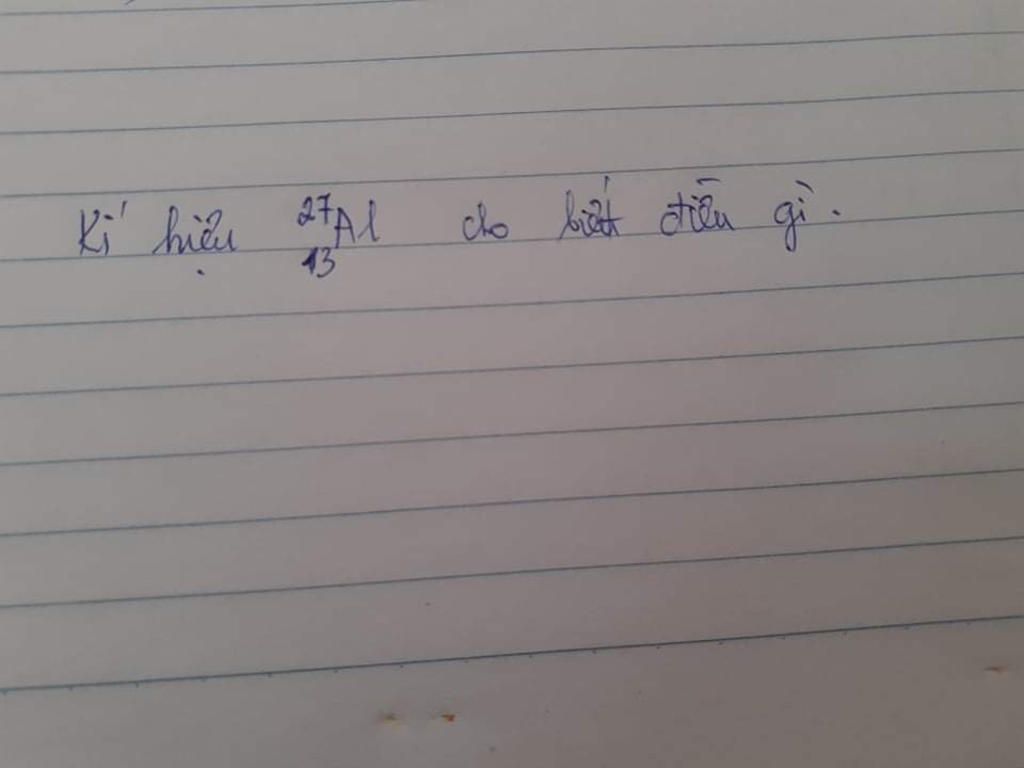 Kí hiệu ²⁷₁₃Al cho biết điều gì.